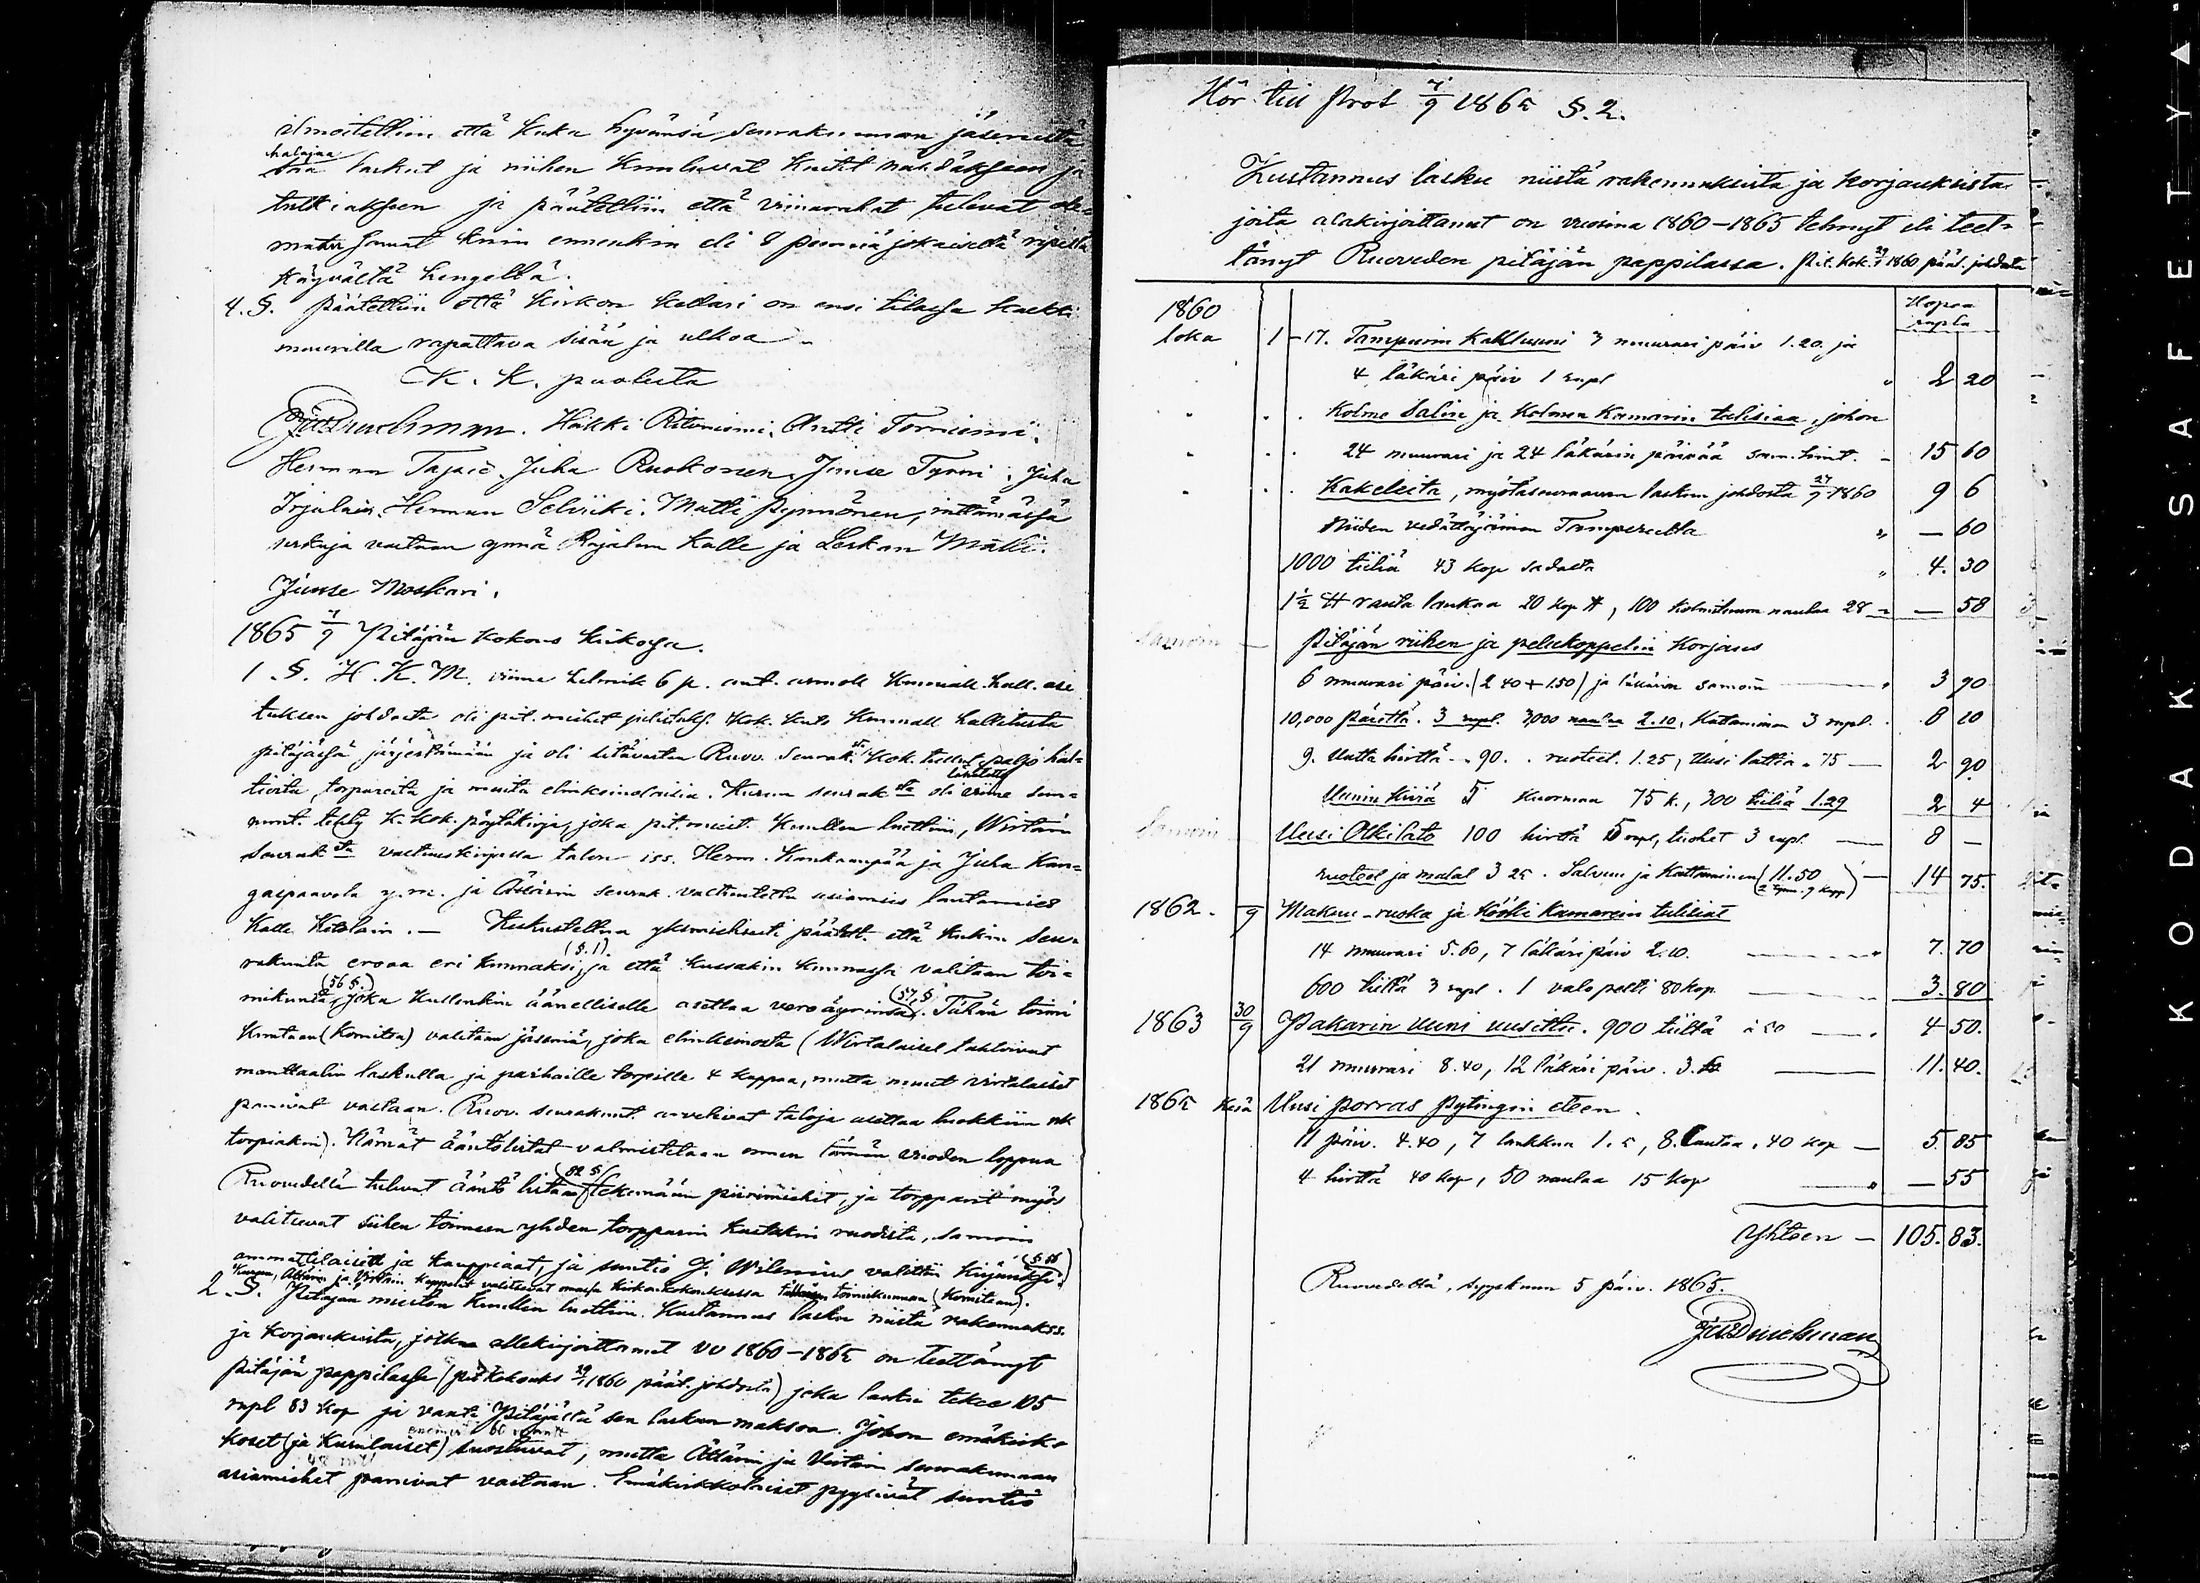 ilmoitettiin että kuka hyvänsä seurakunnan jäsenistä
halajaa
saa laskut ja niihin kuuluvat kuitit nähdäkseen ja
tutkiakseen ja päätettiin että viinarahat tulevat ole-
maan samat kuin ennenkin eli 8 penniä jokaiselta ripillä
käyvältä hengeltä.
4. §. Päätettiin että kirkon kellari on ensi tilassa kalkki
muurilla rapattava sisää ja ulkoa -
K. K. puolesta
Heikki Ritoniemi. Antti Torniemi.
Herman Tapio. Juha Ruokonen. Juuse Tyrmi. Juha
Irjalain. Herman Selviki. Matti Pynnönen,
vastaan Rajalan Kalle ja Leskan Matti.
Juuse Moskari.
1865 7/9 Pitäjän kokous kirkossa.
1. §. H. K. M. viime helmik 6 p. ant. armoll. Kunnall. hall. ase
tuksen johdosta oli pit. miehet Kok. Kunnall. hallitusta
pitäjässä järjestämään ja oli Ruov. seurak. Kok. paljo hal-
lähetetty
tioita, torpareita ja muita elinkeinolaisia. Kurun seurak sta oli viime
k. kok. pöytäkirja, joka pit. miest. kuullen luettiin, Wirtain
seurak sta valtuuskirjassa talon is. Herm. Kankaanpää ja Juha Kan-
gaspaavola y. m. ja Ätsärin seurak. valtuutettu asiamies lautamies
Kalle Ketolain. — Keskusteltua yksimielisesti päätett. että kukin seu-
(§. 1).
rakunta eroaa eri kunnaksi, ja että kussakin kunnassa valitaan toi-
(56 §.) (57. §.)
mikunta, joka kullenkin äänelliselle asettaa veroäyrinsä. Tähän toimi
kuntaan (Komitea) valitaan jäseniä, joka elinkeinosta (Wirtalaiset tahtoivat
manttaalin laskulla ja parhaille torpille 4 kappaa, mutta muut virtalaiset
panivat vastaan. Ruov. seurakunt. arvelivat taloja asettaa luokkiin nk
torpiakin). Nämät ääntölistat valmistetaan ennen tämän vuoden loppua
(82 §)
Ruovedellä tulevat ääntö listaa tekemään piirimiehet, ja torpparit myös
valitsevat siihen toimeen yhden torpparin kustakin ruodista, samoin
ammattilaiset ja kauppiaat, ja suntio J. Wilenius valittiin kirjuriksi.
Kurun, Ätsärin ja Wirtain kappelit valitsevat omassa kirkonkokouksessa tällaisen toimikunnan (Komitean).
2. §. Pitäjän miesten kuullen luettiin Kustannus lasku niistä rakennukss.
ja korjauksista, jotka allekirjoittanut vv 1860-1865 on teettänyt
pitäjän pappilassa (pit kokouks 29/1 1860 päät. johdosta) joka lasku tekee 105
rupl 83 kop ja vaati pitäjästä sen laskun maksoa. Johon emäkirk-
koset (ja Kurulaiset) suostuivat, mutta Ätsärin ja Virtain seurakunnan
asiamiehet panivat vastaan. Emäkirkkolaiset pyysivät suntio
Hör till Prot 7/9 1865 §. 2.
Kustannus lasku niistä rakennuksista ja korjauksista
joita alakirjoittanut on vuosina 1860-1865 tehnyt eli teet-
tänyt Ruoveden pitäjän pappilassa. Pit. kok. 29/1 1860 päät. johdosta
Hopea
rupla
1860
loka 1-17. Tampuurin Kakluuni 3 muurari päiv 1.20. ja
4 läkäri päiv 1 rupl " 2 20
Kolme Salin ja Kolmen Kamarin tulisiaa, johon
24 muurari ja 24 läkärin päivää sam. hint. - 15 60
Kakeleita, myötäseuraavan laskun johdosta 27/9 1860 9 6
Niiden vedättäminen Tampereelta " — 60
1000 tiiliä 43 kop sadalta " 4. 30
1½ ℔ rauta lankaa 20 kop ℔, 100 kolmituuma naulaa 28 - — 58
Samoin — Pitäjän riihen ja pelukoppelin Korjaus
6 muurari päiv. (2 40 + 1.50) ja läkärin samoin — " 3 90
10,000 päreitä. 3 rupl. 3000 naulaa 2.10, Kattaminen 3 rupl. 8 10
9. Uutta hirttä - 90. ruoteet. 1.25, Uusi lattia. 75 — 2 90
Uunin kiviä 5 kuormaa 75 k., 300 tiiliä 1.29 2 4
Samoin Uusi Olkilato 100 hirttä 5 rupl, tuohet 3 rupl. — 8 —
ruoteet ja malat 3 25. Salvuu ja Kattaminen (11.50) — 14 75.
1862. 9 Makuu-ruoka ja Köökki Kamarein tulisiat
14 muurari 5.60, 7 läkäri päiv 2.10. — " 7. 70
600 tiiltä 3 rupl. 1 valo pelti 80 kop — 3. 80
1863 30/9 Pakarin Uuni uusittu. 900 tiiltä à 50 — 4 50.
21 muurari 8.40, 12 läkäri päiv. 3. — 11. 40.
1865 Kesä Uusi porras Pytingin eteen.
11 päiv. 4.40, 7 lankkua 1.5, 8. Lautaa. 40 kop — 5. 85
4 hirttä 40 kop, 50 naulaa 15 kop — " — 55
Yhteen — 105. 83.
Ruovedellä, syyskuun 5 päiv. 1865.
KODAK SAFETY